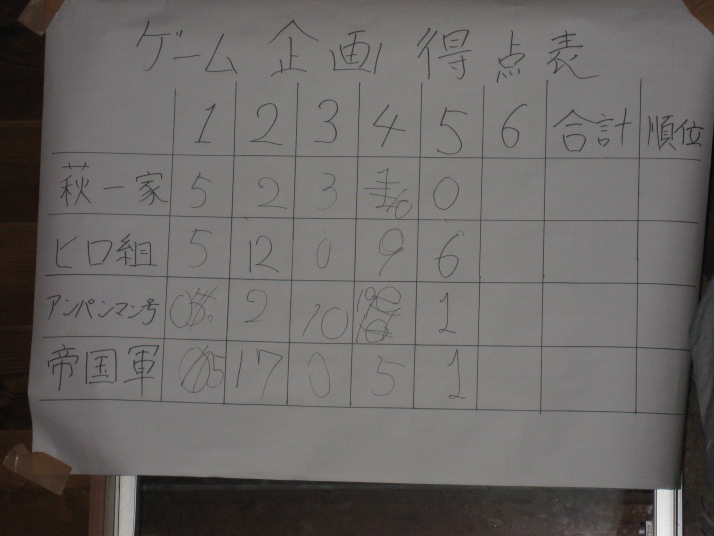 ゲーム 企画 得点表
1 2 3 4 5 6 合計 順位
萩一家 5 2 3 0
ヒロ組 5 12 0 9 6
アンパンマン号 2 10 1
帝国軍 5 17 0 5 1